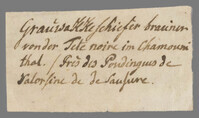 Grauwakkeschiefer brauner
von der Tete noire im Chamouni
thal. / Près des Poudingues de
Valorsine de de Saussure.